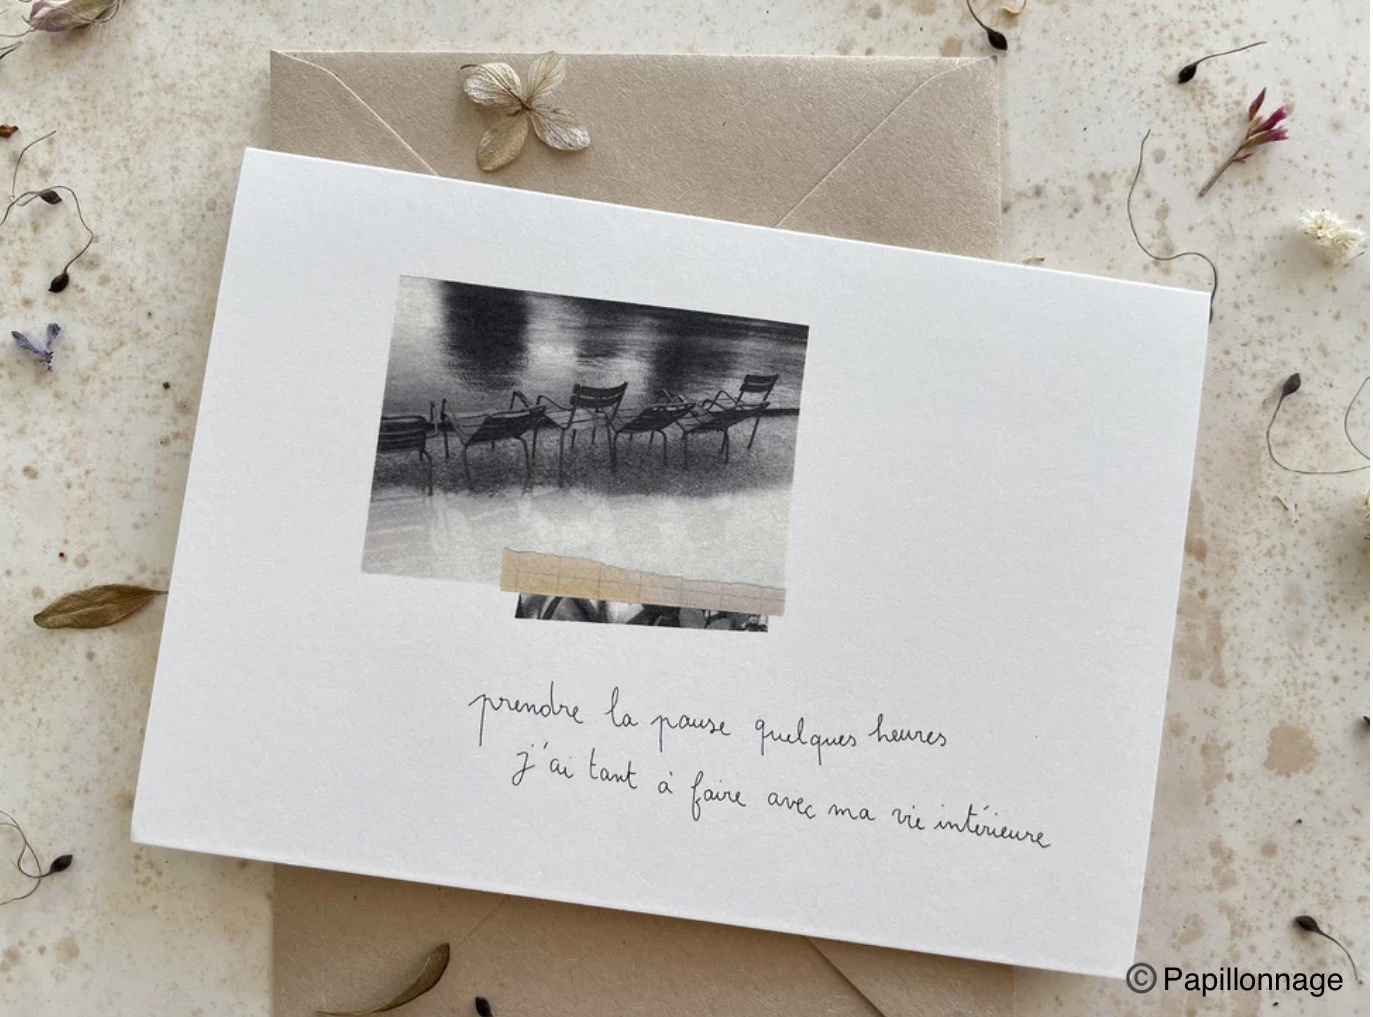 prendre la pause quelques heures
j'ai tant à faire avec ma vie intérieure
© Papillonnage